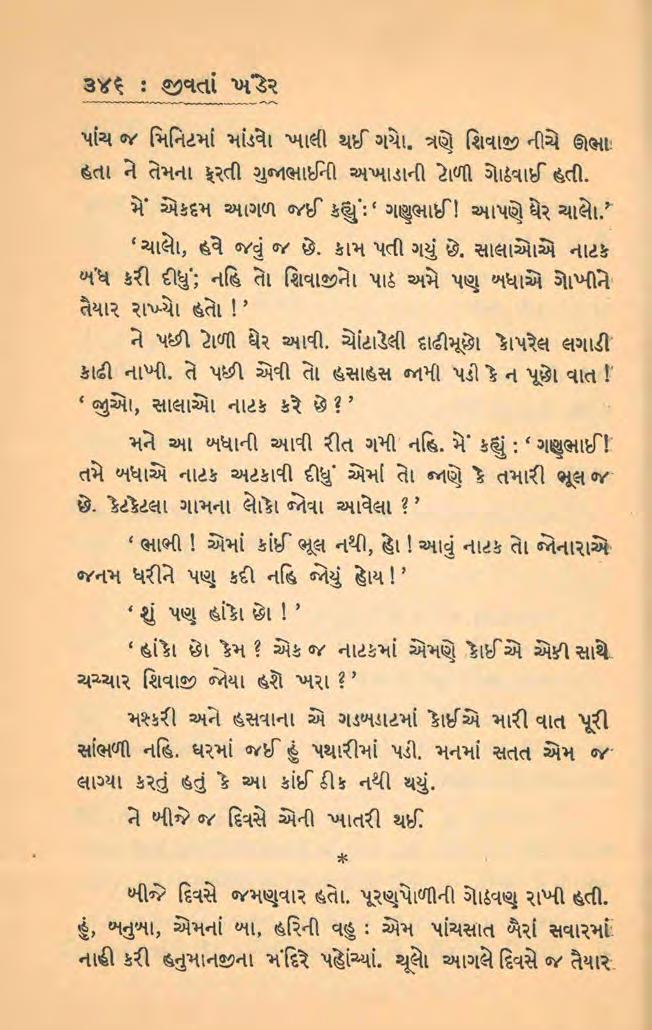 ૩૪૬ : જીવતાં ખંડેર
પાંચ જ મિનિટમાં માંડવો ખાલી થઈ ગયો. ત્રણે શિવાજી નીચે ઊભા
હતા ને તેમના ફરતી ગુજાભાઈની અખાડાની ટોળી ગોઠવાઈ હતી.
મેં એકદમ આગળ જઈ કહ્યું: ‘ ગણુભાઈ! આપણે ઘેર ચાલો.’
‘ચાલો, હવે જવું જ છે. કામ પતી ગયું છે. સાલાઓએ નાટક
બંધ કરી દીધું; નહિ તો શિવાજીનો પાઠ અમે પણ બધાએ ગોખીને
તૈયાર રાખ્યો હતો !’
ને પછી ટોળી ઘેર આવી. ચોંટાડેલી દાઢીમૂછો કોપરેલ લગાડી
કાઢી નાખી. તે પછી એવી તો હસાહસ જામી પડી કે ન પૂછો વાત !
‘ જુઓ, સાલાઓ નાટક કરે છે ? ’
મને આ બધાની આવી રીત ગમી નહિ. મેં કહ્યું : ‘ ગણુભાઈ!
તમે બધાએ નાટક અટકાવી દીધું એમાં તો જાણે કે તમારી ભૂલ જ
છે. કેટકેટલા ગામના લોકો જોવા આવેલા ? ’
‘ ભાભી ! એમાં કાંઈ ભૂલ નથી, હો ! આવું નાટક તો જોનારાએ
જનમ ધરીને પણ કદી નહિ જોયું હોય ! ’
‘ શું પણ હાંકો છો ! ’
‘ હાંકો છો કેમ ? એક જ નાટકમાં એમણે કોઈ એ એકી સાથે
ચચ્ચાર શિવાજી જોયા હશે ખરા ? ’
મશ્કરી અને હસવાના એ ગડબડાટમાં કોઈએ મારી વાત પૂરી
સાંભળી નહિ. ઘરમાં જઈ હું પથારીમાં પડી. મનમાં સતત એમ જ
લાગ્યા કરતું હતું કે આ કાંઈ ઠીક નથી થયું.
ને બીજે જ દિવસે એની ખાતરી થઈ.
*
બીજે દિવસે જમણવાર હતો. પૂરણપોળીની ગોઠવણ રાખી હતી.
હું, બનુબા, એમનાં બા, હરિની વહુ : એમ પાંચસાત બૈરાં સવારમાં
નાહી કરી હનુમાનજીના મંદિરે પહોંચ્યાં. ચૂલો આગલે દિવસે જ તૈયાર